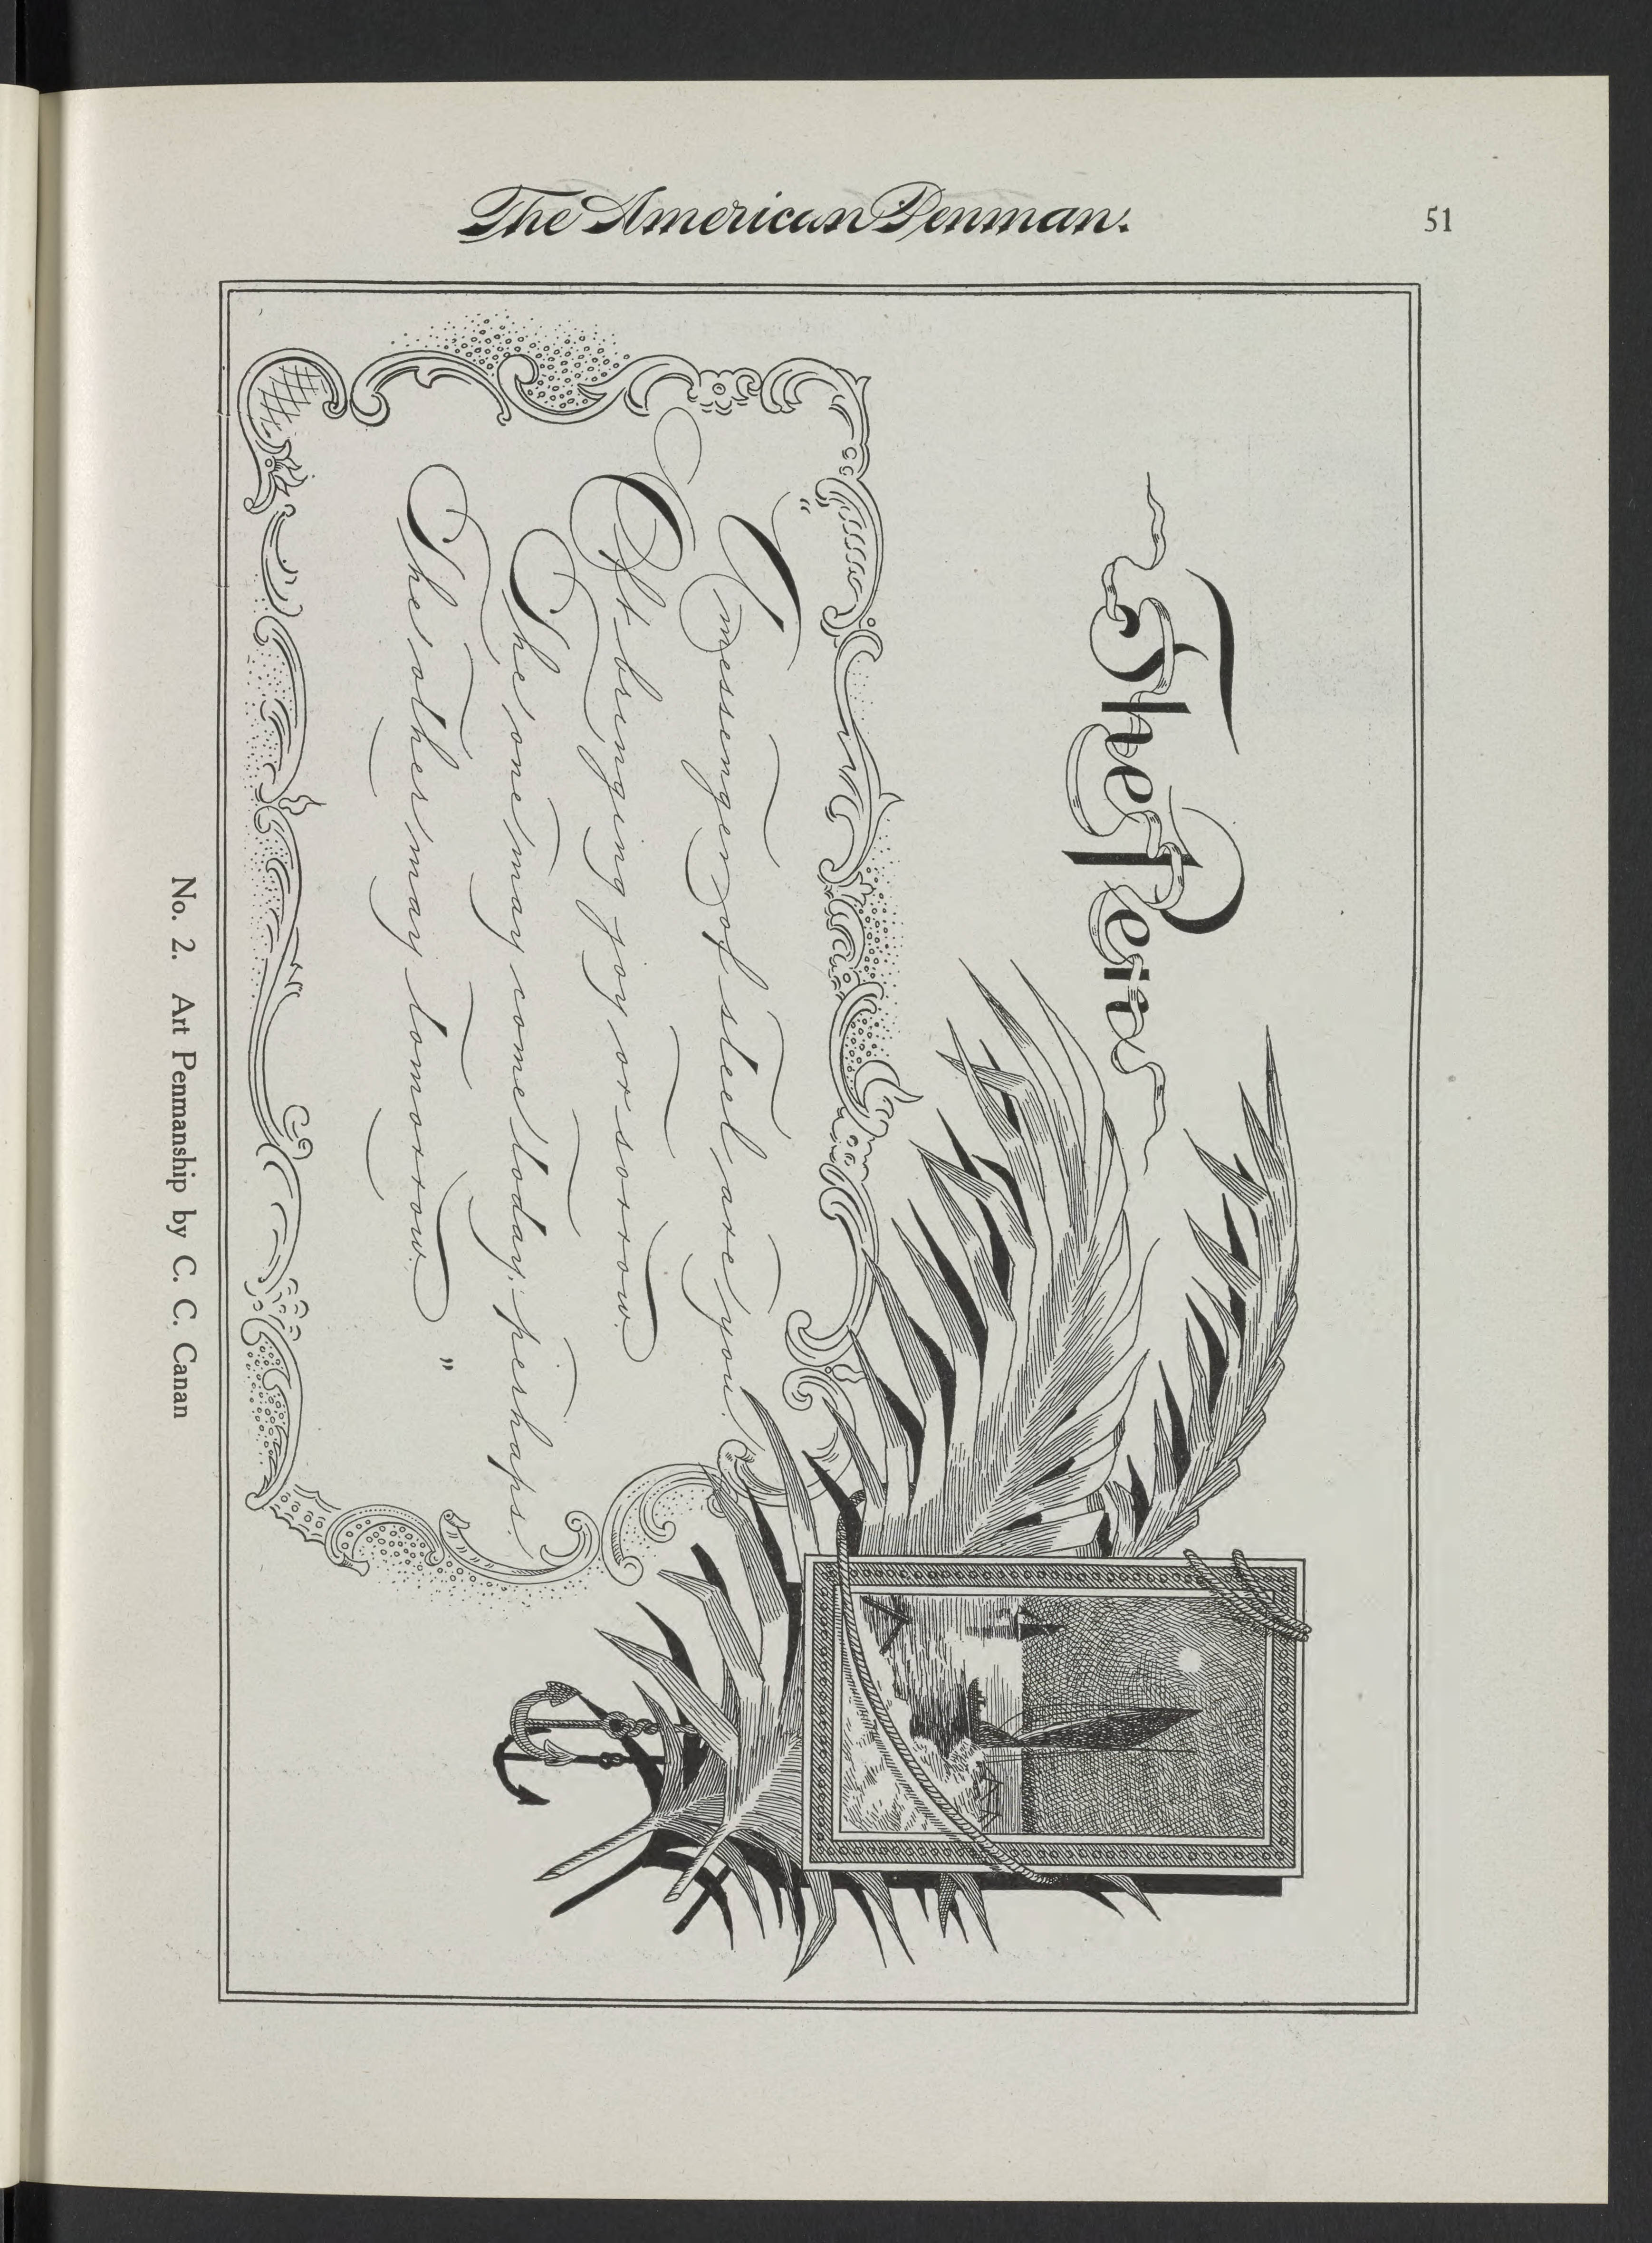 The American Penman.
51
The Pen
"A messenger of steel are you.
Oft bringing joy or sorrow.
The one may come today; perhaps.
The other may tomorrow."
No. 2. Art Penmanship by C. C. Canan